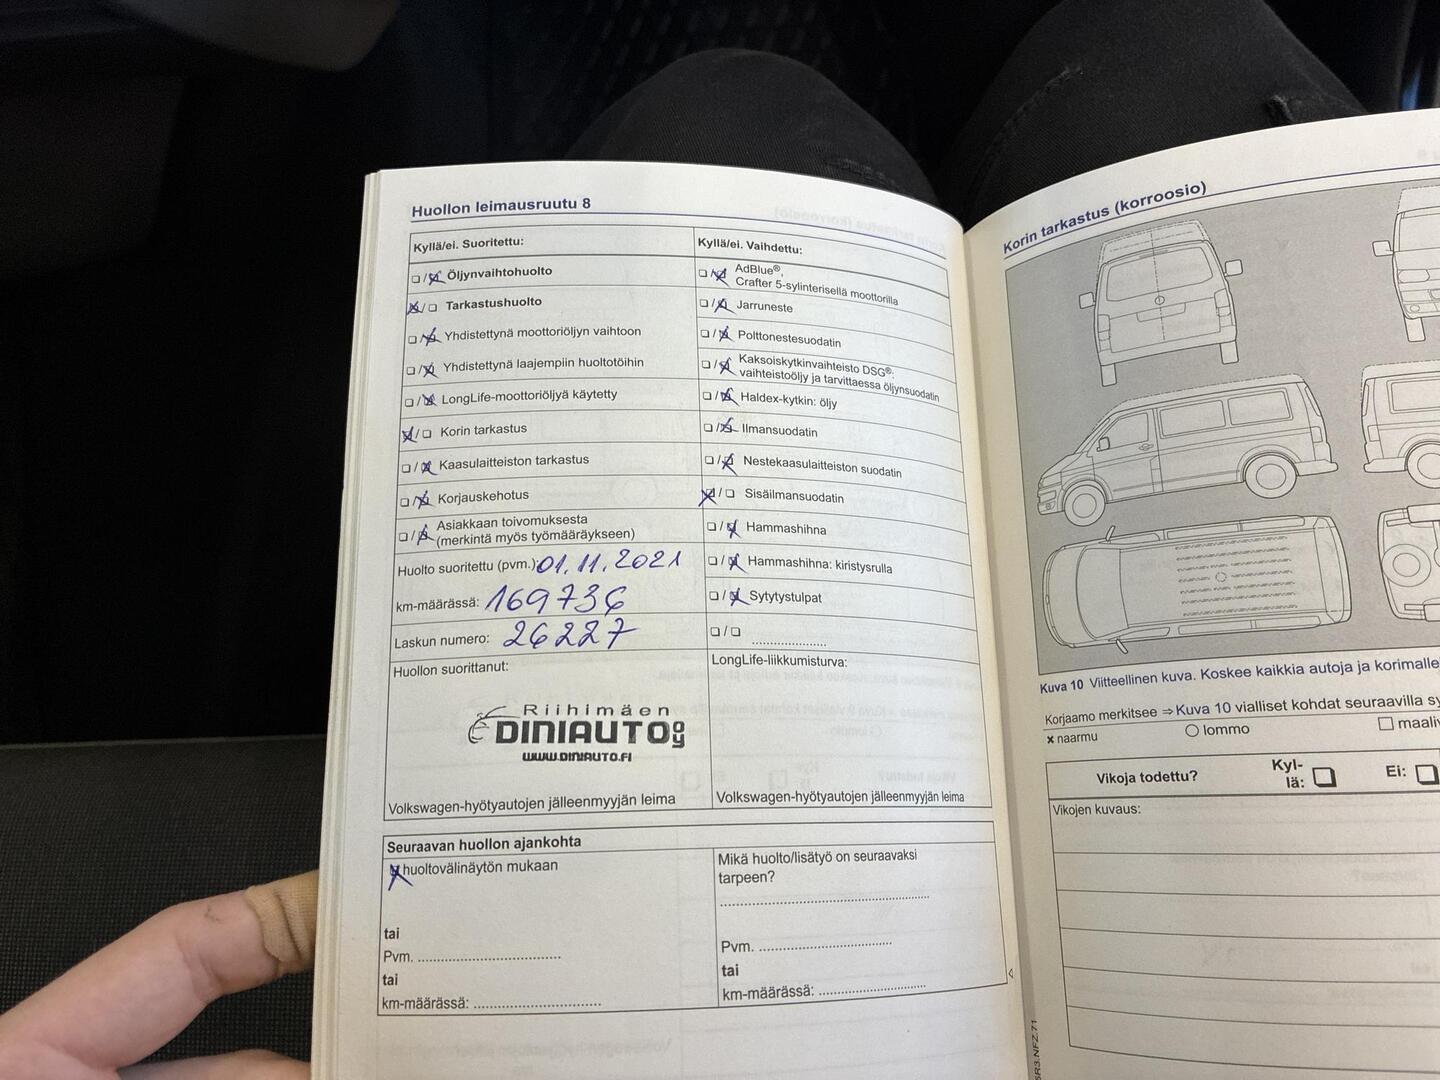 Huollon leimausruutu 8
Kyllä/ei. Suoritettu:
Öljynvaihtohuolto
Tarkastushuolto
Yhdistettynä moottoriöljyn vaihtoon
Yhdistettynä laajempiin huoltotöihin
LongLife-moottoriöljyä käytetty
Korin tarkastus
Kaasulaitteiston tarkastus
Korjauskehotus
Asiakkaan toivomuksesta
(merkintä myös työmääräykseen)
Huolto suoritettu (pvm.): 01.11.2021
km-määrässä: 169736
Laskun numero: 26227
Huollon suorittanut:
Riihimäen
DINIAUTO OY
WWW.DINIAUTO.FI
Volkswagen-hyötyautojen jälleenmyyjän leima
Kyllä/ei. Vaihdettu:
AdBlue®,
Crafter 5-sylinterisellä moottorilla
Jarruneste
Polttonestesuodatin
Kaksoiskytkinvaihteisto DSG®:
vaihteistoöljy ja tarvittaessa öljynsuodatin
Haldex-kytkin: öljy
Ilmansuodatin
Nestekaasulaitteiston suodatin
Sisäilmansuodatin
Hammashihna
Hammashihna: kiristysrulla
Sytytystulpat
LongLife-liikkumisturva:
Volkswagen-hyötyautojen jälleenmyyjän leima
Seuraavan huollon ajankohta
huoltovälinäytön mukaan
tai
Pvm.
tai
km-määrässä:
Mikä huolto/lisätyö on seuraavaksi
tarpeen?
Pvm.
tai
km-määrässä:
Korin tarkastus (korroosio)
Kuva 10 Viitteellinen kuva. Koskee kaikkia autoja ja korimalle
Korjaamo merkitsee ⇒ Kuva 10 vialliset kohdat seuraavilla sy
x naarmu
lommo
maaliv
Vikoja todettu?
Kyl-
lä:
Ei:
Vikojen kuvaus: